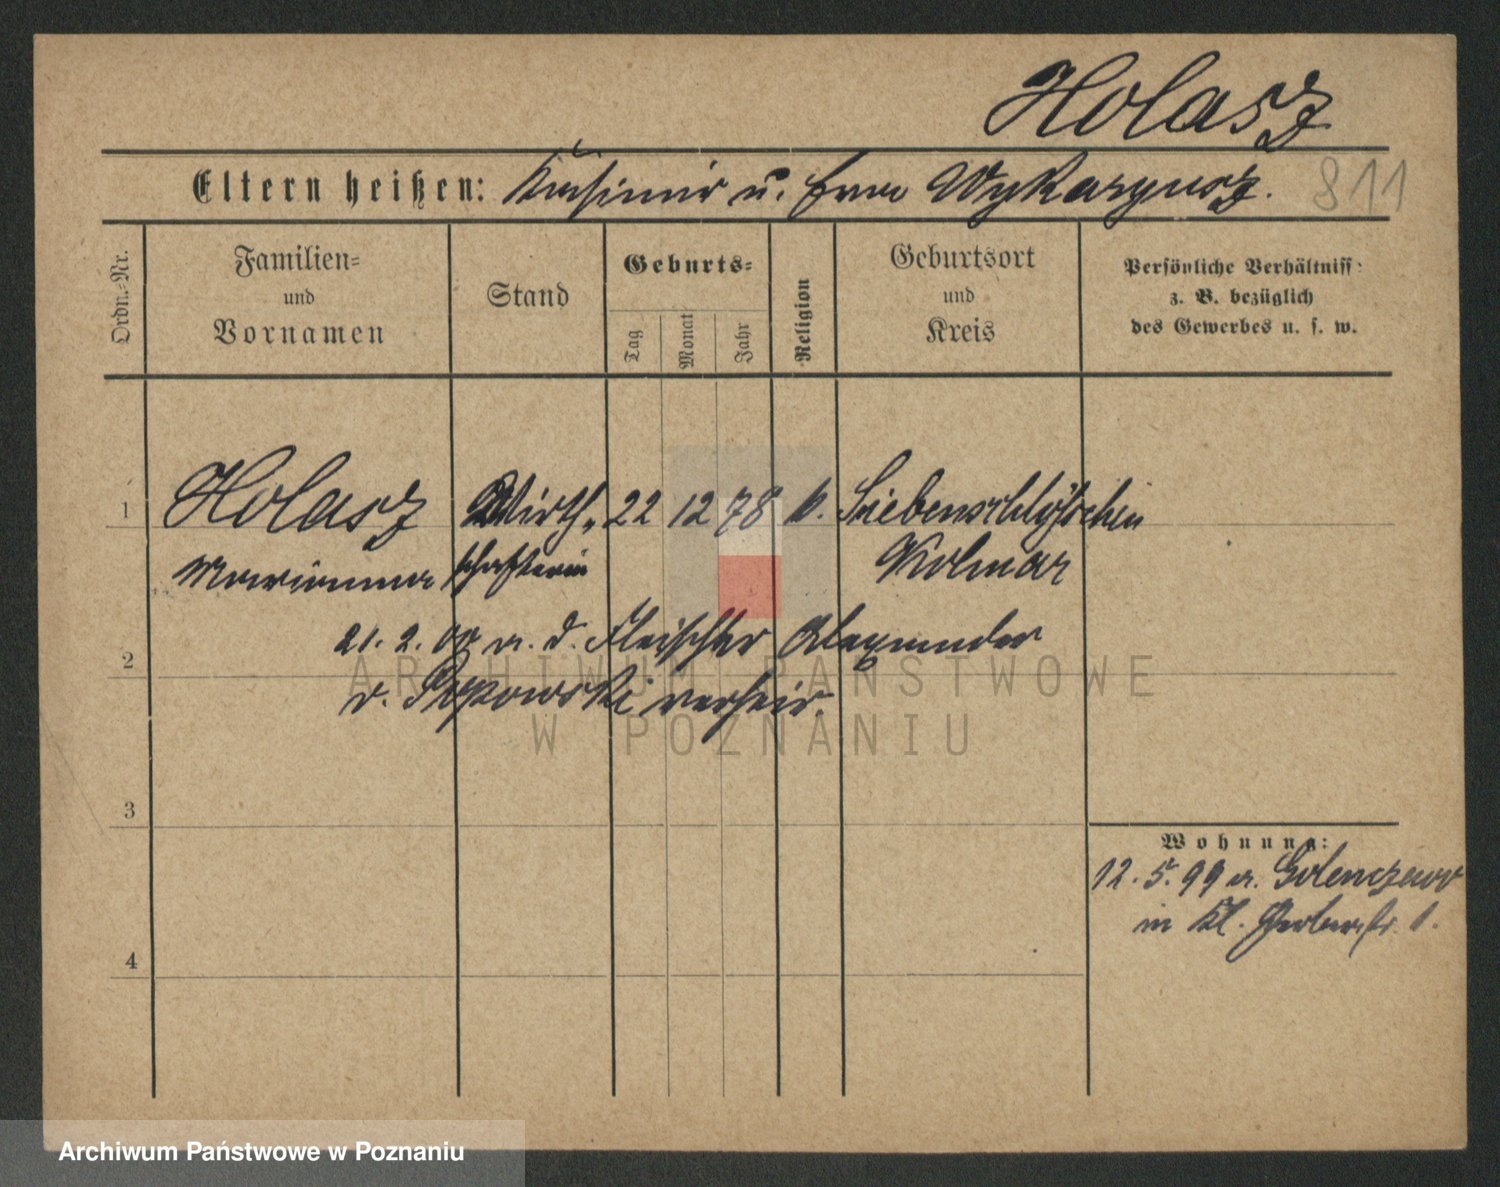 Holasz
Eltern heißen: Kasimir u. Eva Wykargusz. 811
Ordn.-Nr.
Familien-
und
Vornamen
Stand
Geburts-
Tag
Monat
Jahr
Religion
Geburtsort
und
Kreis
Persönliche Verhältniss
z. B. bezüglich
des Gewerbes u. s. w.
1 Holasz Wirth- 22 12 78 k. Siebenschlößchen
Marianna schafterin Kolmar
21. 2. m. d. Fleischer Alexander
2
v. verheir.
3
4
Wohnung:
12. 5. 99 a. Golenczewo
in Kl. Gerberstr. 1.
ARCHIWUM PAŃSTWOWE
W POZNANIU
Archiwum Państwowe w Poznaniu